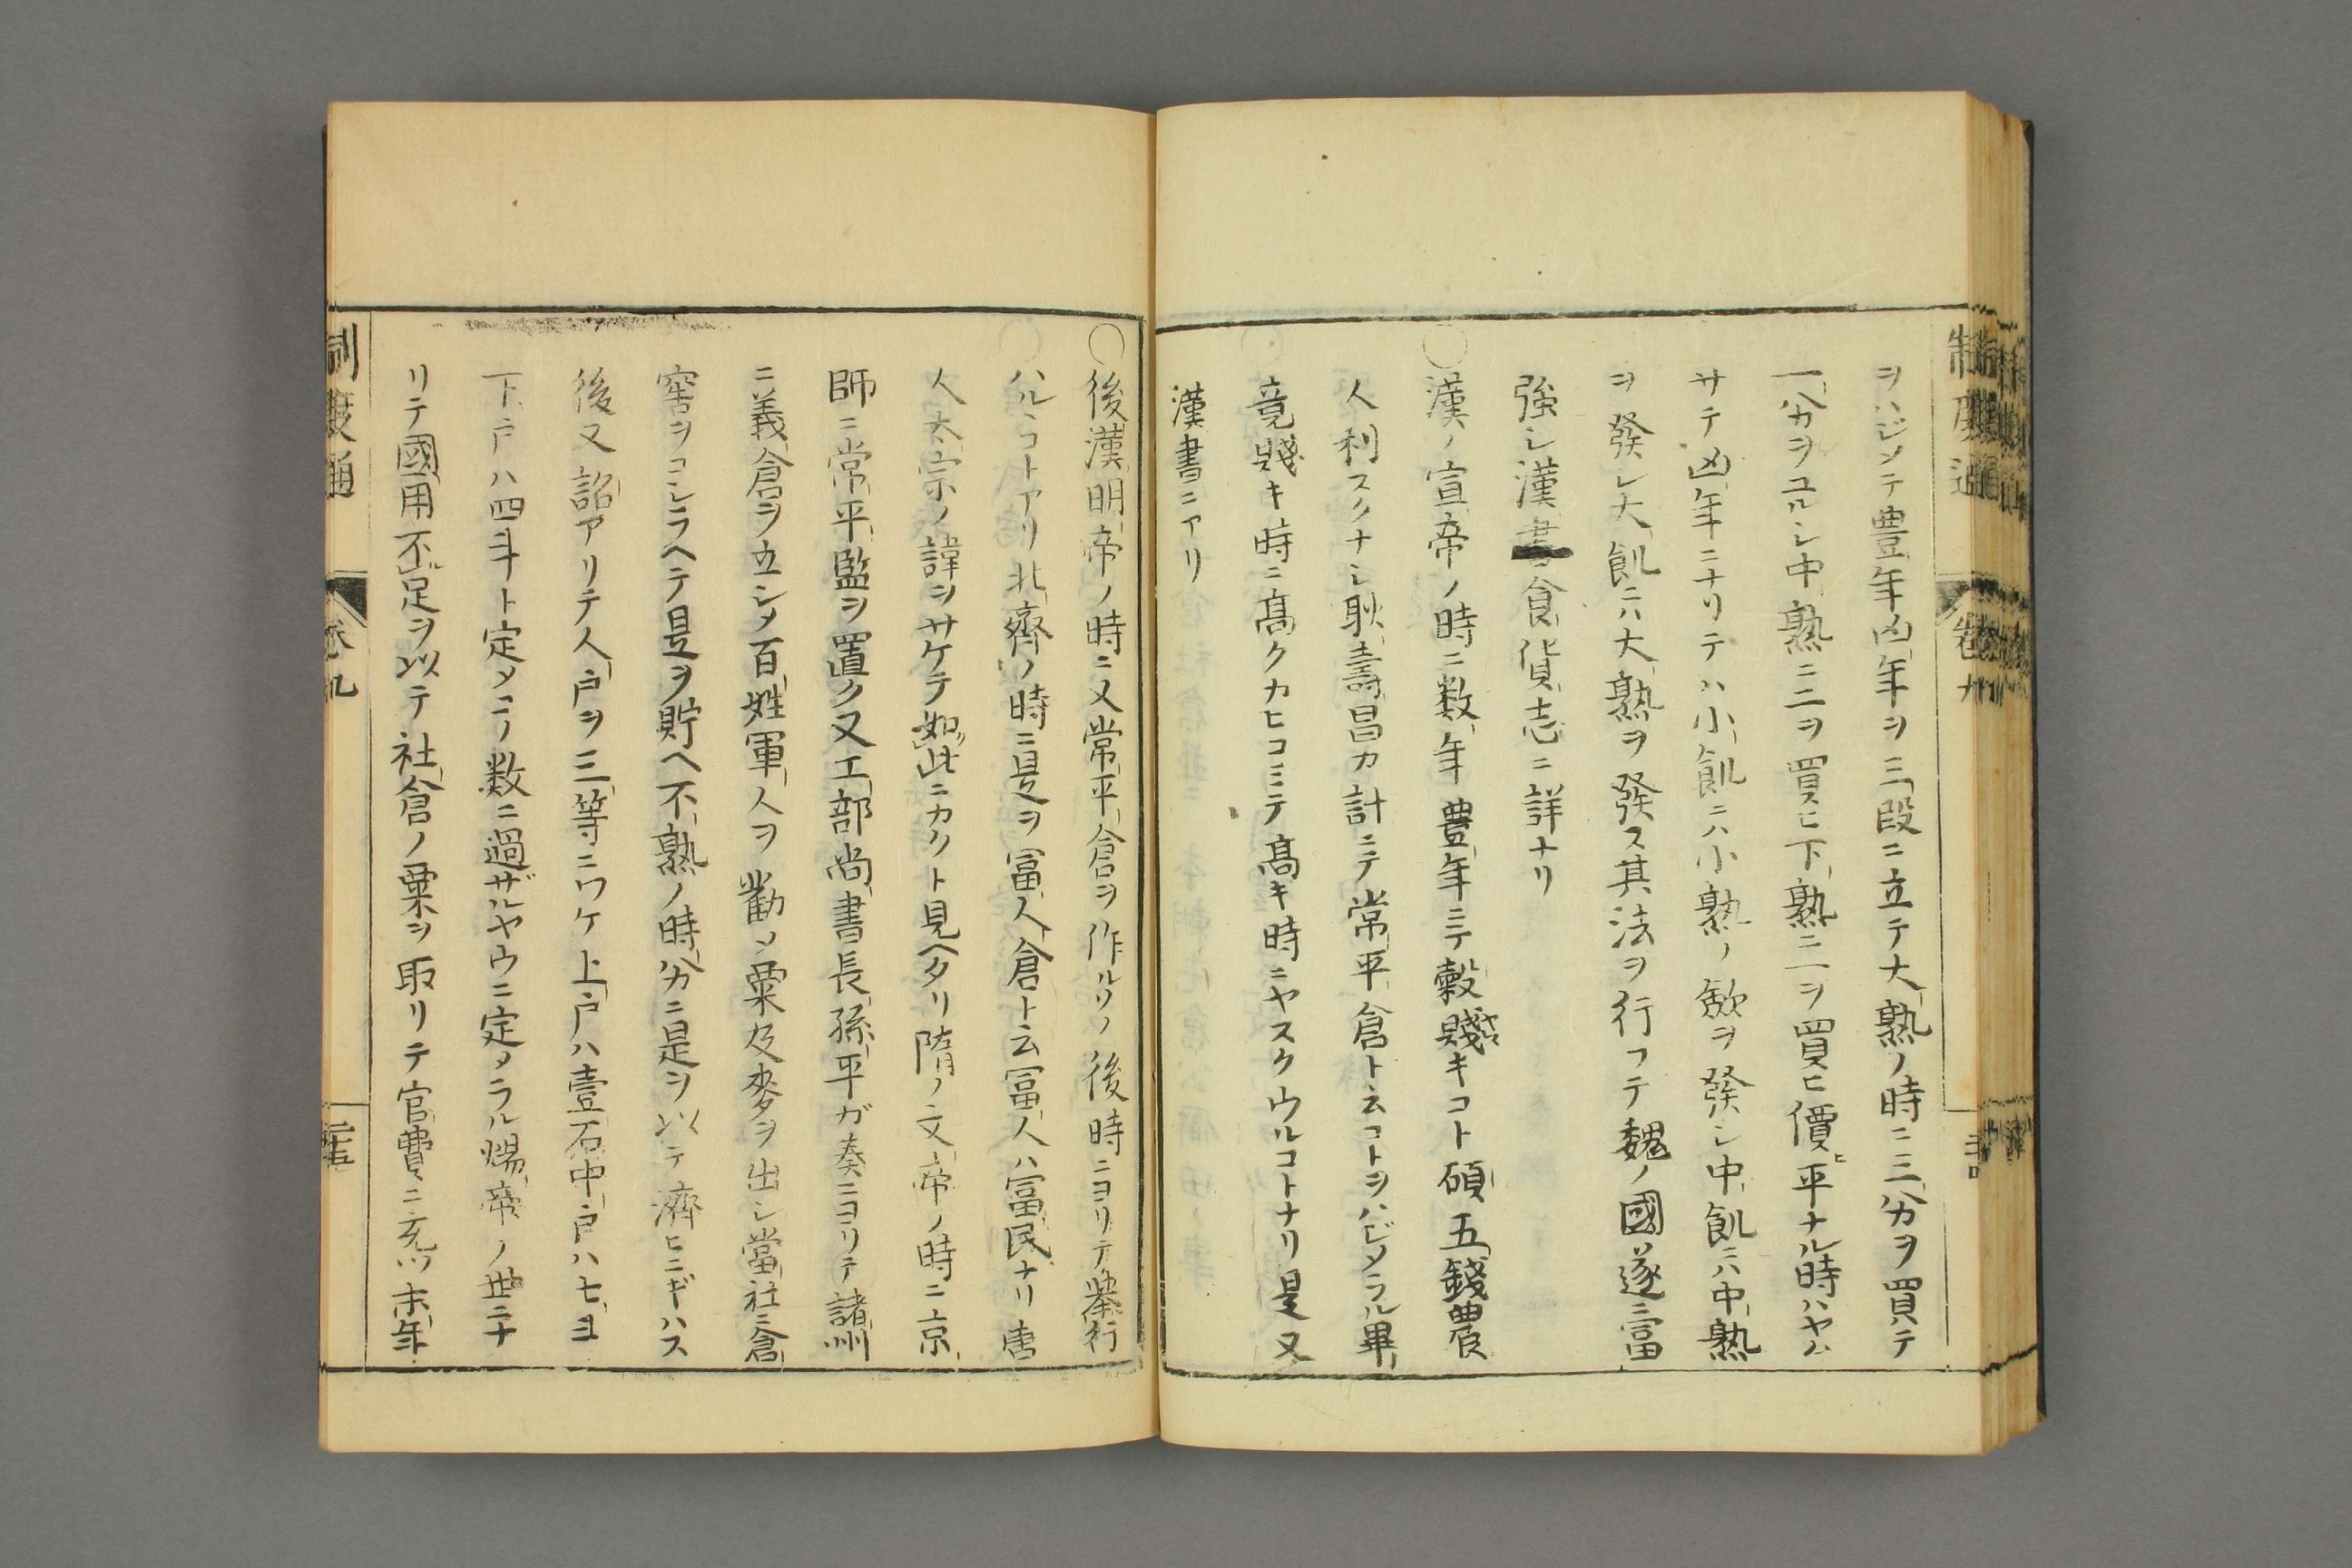 制度通 卷九 三十四
ヲハジメテ豊年凶年ヲ三段ニ立テ大熟ノ時ニ三分ヲ買テ
一分ヲユルシ中熟ニ二ヲ買ヒ下熟ニ一ヲ買ヒ價ヒ平ナル時ハヤム
サテ凶年ニナリテハ小飢ニハ小熟ノ斂ヲ發シ中飢ニハ中熟
ヲ發シ大飢ニハ大熟ヲ發ス其法ヲ行フテ魏ノ國遂ニ富
強シ漢書食貨志ニ詳ナリ
○漢ノ宣帝ノ時ニ数年豊年ニテ穀賤キコト碩五錢農
人利スクナシ耿壽昌カ計ニテ常平倉ト云コトヲハジメラル畢
竟賤キ時ニ高クカヒコミテ高キ時ニヤスクウルコトナリ是又
漢書ニアリ
○後漢明帝ノ時ニ又常平倉ヲ作ルソノ後時ニヨリテ擧行
ハルヽコトアリ北齊ノ時ニ是ヲ富人倉ト云富人ハ富民ナリ唐
人太宗ノ諱ヲサケテ如此ニカクト見ヘタリ隋ノ文帝ノ時ニ京
師ニ常平監ヲ置ク又工部尚書長孫平ガ奏ニヨリテ諸州
ニ義倉ヲ立シメ百姓軍人ヲ勸メ粟及麥ヲ出シ當社ニ倉
窖ヲコシラヘテ是ヲ貯ヘ不熟ノ時分ニ是ヲ以テ濟ヒニギハス
後又詔アリテ人戸ヲ三等ニワケ上戸ハ壹石中戸ハ七斗
下戸ハ四斗ト定メコノ数ニ過ザルヤウニ定メラル煬帝ノ世ニナ
リテ國用不足ヲ以テ社倉ノ粟ヲ取リテ官費ニ充ツ末年
制度通 卷九 三十五